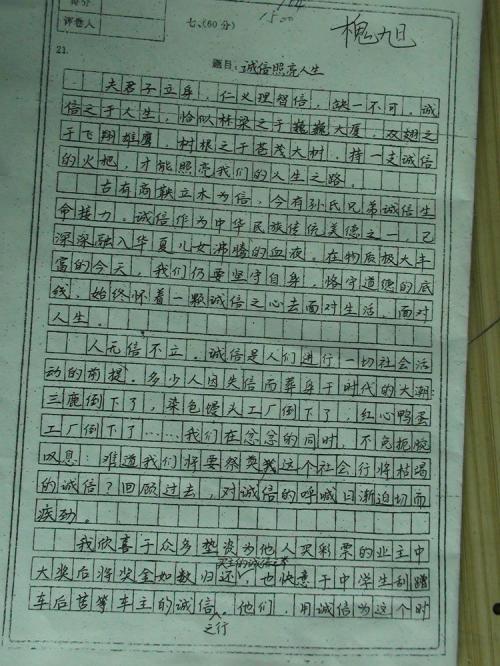 评卷人
七、(60分)
1500
槐旭
21.
题目:诚信照亮人生
夫君子立身,仁义理智信,缺一不可。诚
信之于人生,恰似栋梁之于巍巍大厦,双翅之
于飞翔雄鹰,树根之于苍茂大树。持一支诚信
的火把,才能照亮我们的人生之路。
古有商鞅立木为信,今有孙氏兄弟诚信生
命接力。诚信作为中华民族传统美德之一,已
深深融入华夏儿女沸腾的血液。在物质极大丰
富的今天,我们仍要坚守自身,恪守道德的底
线,始终怀着一颗诚信之心去面对生活,面对
人生。
人无信不立。诚信是人们进行一切社会活
动的前提。多少人因失信而葬身于时代的大潮
三鹿倒下了,染色馒头工厂倒下了,红心鸭蛋
工厂倒下了……我们在忿忿的同时,不免扼腕
叹息:难道我们将要祭奠这个社会行将枯竭
的诚信?回顾过去,对诚信的呼喊日渐迫切而
疾劲。
我欣喜于众多垫资为他人买彩票的业主中
大奖后将奖金如数归还买主的诚信之举,也快意于中学生刮蹭
车后苦等车主的诚信之行。他们,用诚信为这个时